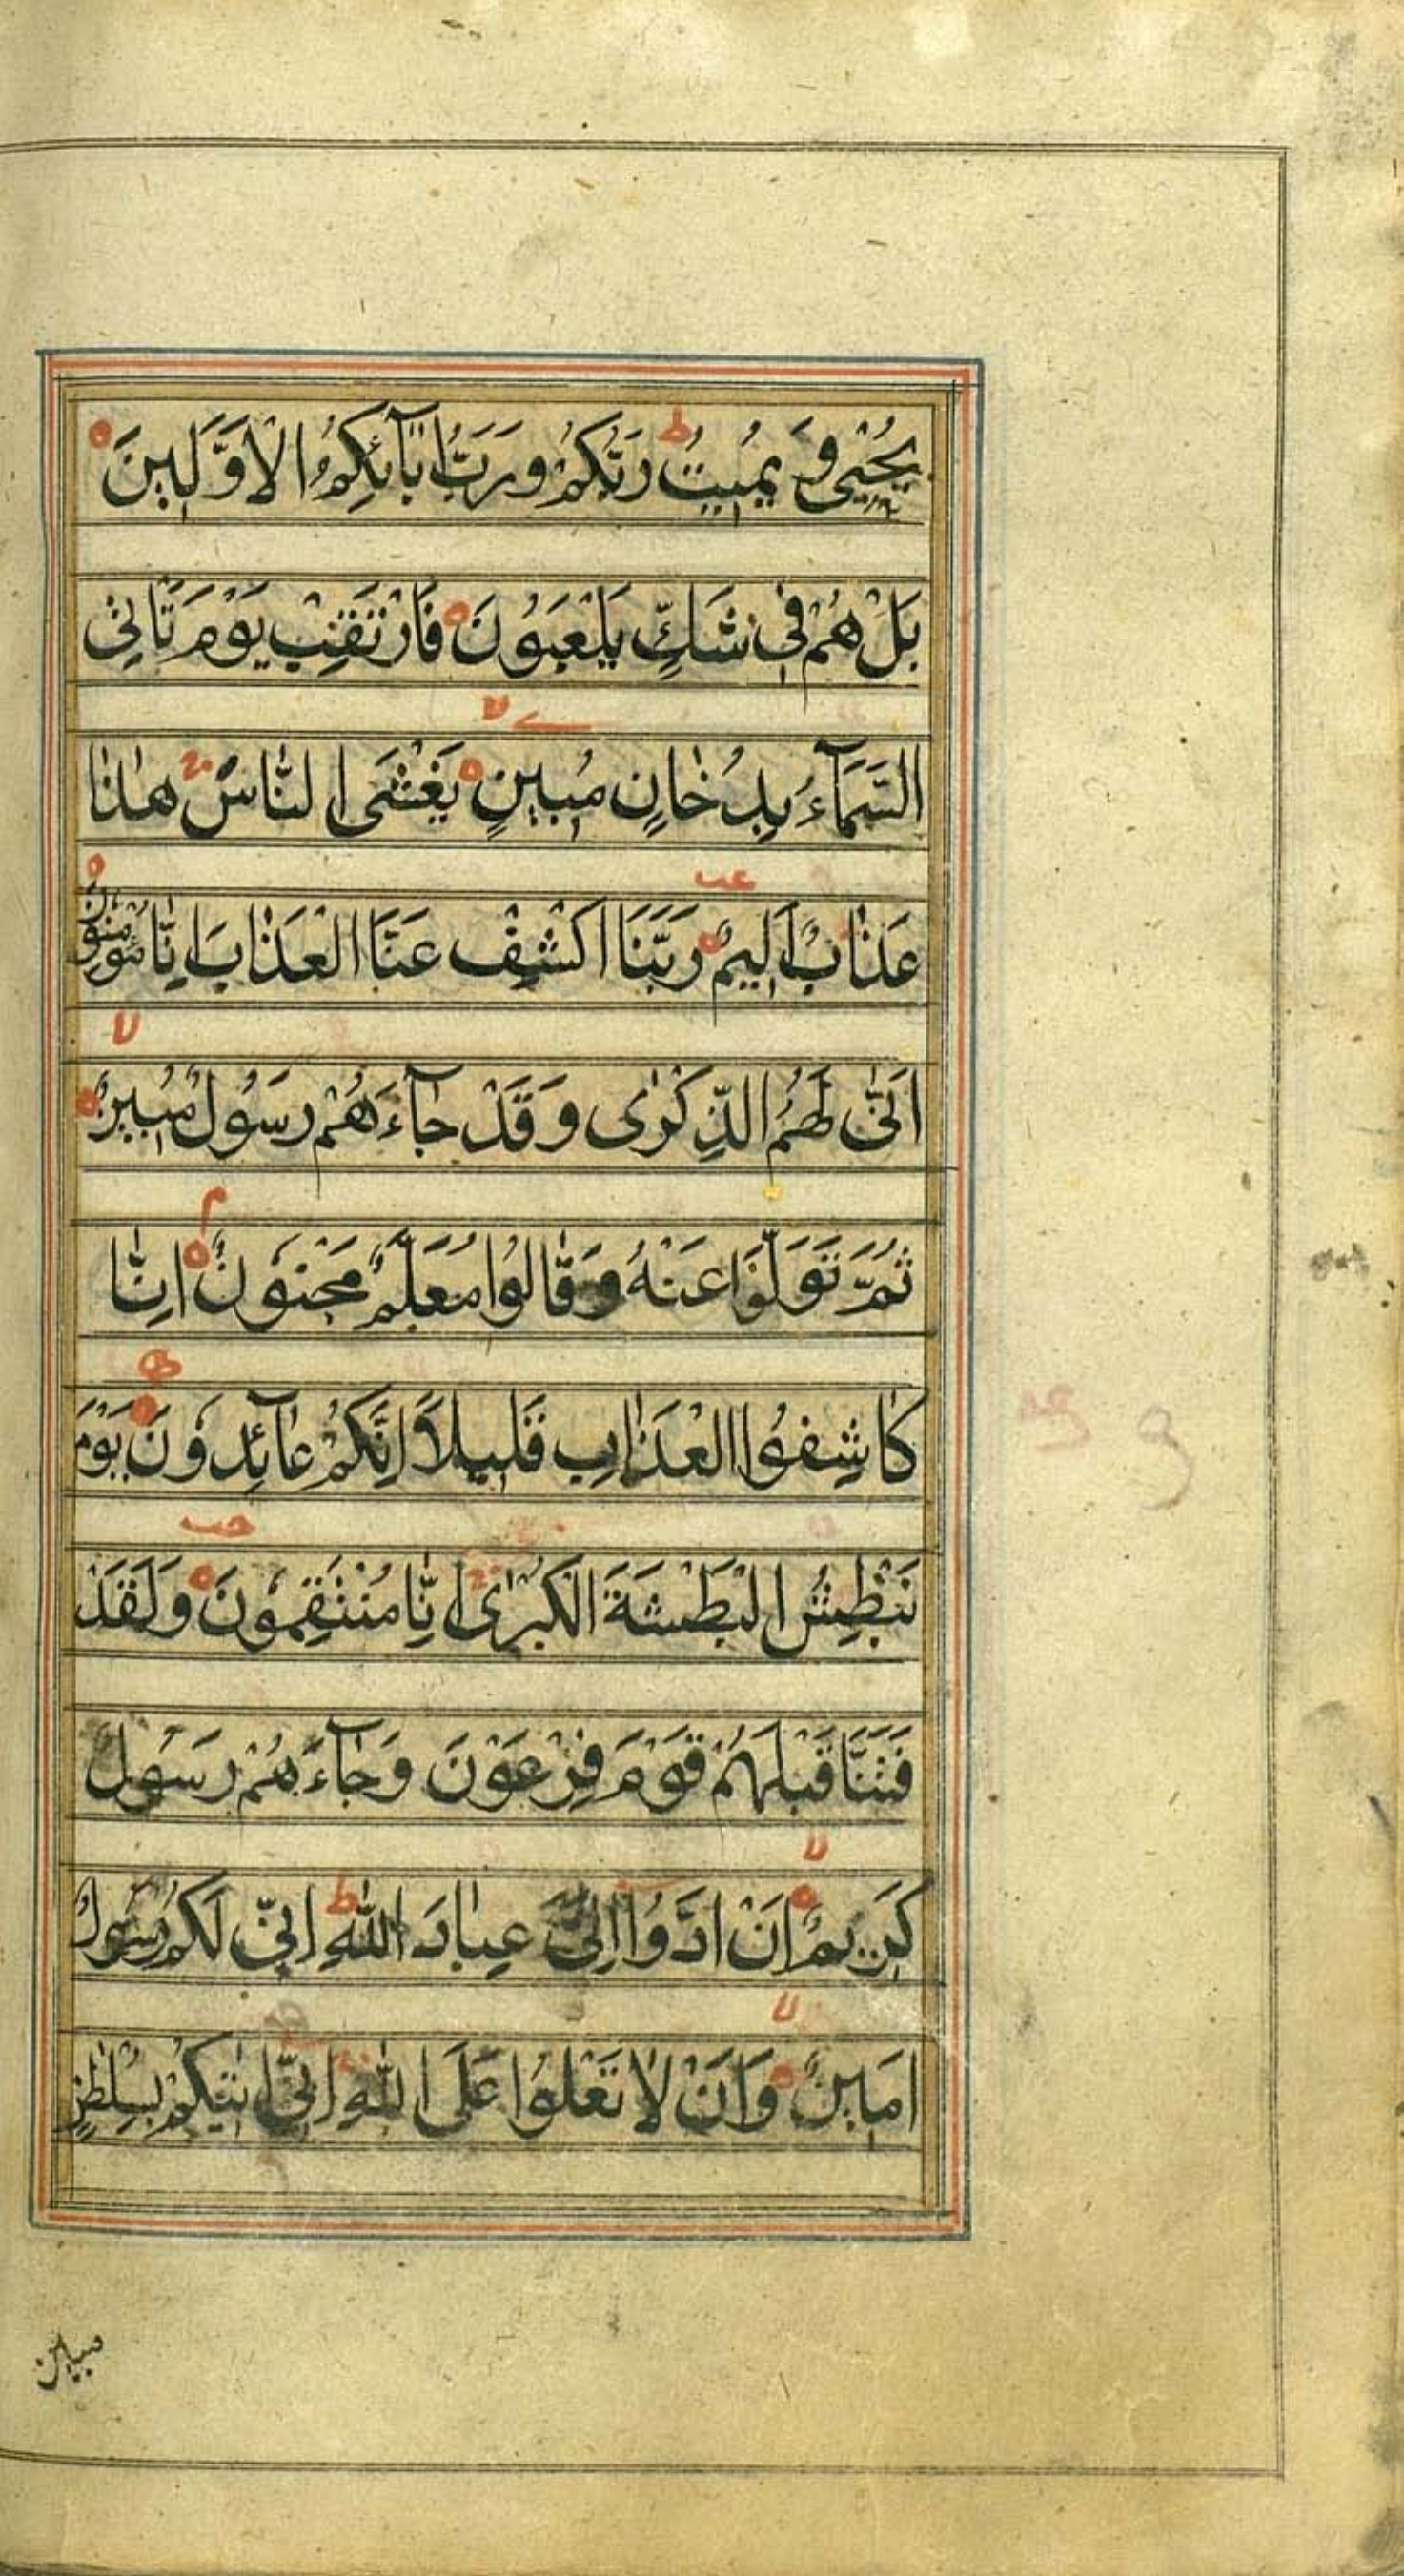 يُحْيٖي وَ يُمِيتُ ط رَبُّكُمْ وَرَبُّ اٰبَآئِكُمُ الْاَوَّلِينَ
بَلْ هُمْ فِي شَكٍّ يَلْعَبُونَ فَارْتَقِبْ يَوْمَ تَاْتِي
السَّمَآءُ بِدُخَانٍ مُبِينٍ يَغْشَى النَّاسَ هٰذَا
عَذَابٌ اَلِيمٌ رَبَّنَا اكْشِفْ عَنَّا الْعَذَابَ اِنَّا مُؤْمِنُونَ
اَنّٰى لَهُمُ الذِّكْرٰى وَقَدْ جَآءَهُمْ رَسُولٌ مُبِينٌ
ثُمَّ تَوَلَّوْا عَنْهُ وَقَالُوا مُعَلَّمٌ مَجْنُونٌ م اِنَّا
كَاشِفُوا الْعَذَابِ قَلِيلًا اِنَّكُمْ عَائِدُونَ يَوْمَ
نَبْطِشُ الْبَطْشَةَ الْكُبْرٰى اِنَّا مُنْتَقِمُونَ وَلَقَدْ
فَتَنَّا قَبْلَهُمْ قَوْمَ فِرْعَوْنَ وَجَآءَهُمْ رَسُولٌ
كَرِيمٌ اَنْ اَدُّوا اِلَيَّ عِبَادَ اللّٰهِ ط اِنِّي لَكُمْ رَسُولٌ
اَمِينٌ وَاَنْ لَا تَعْلُوا عَلَى اللّٰهِ اِنِّي اٰتِيكُمْ بِسُلْطٰنٍ
مبين